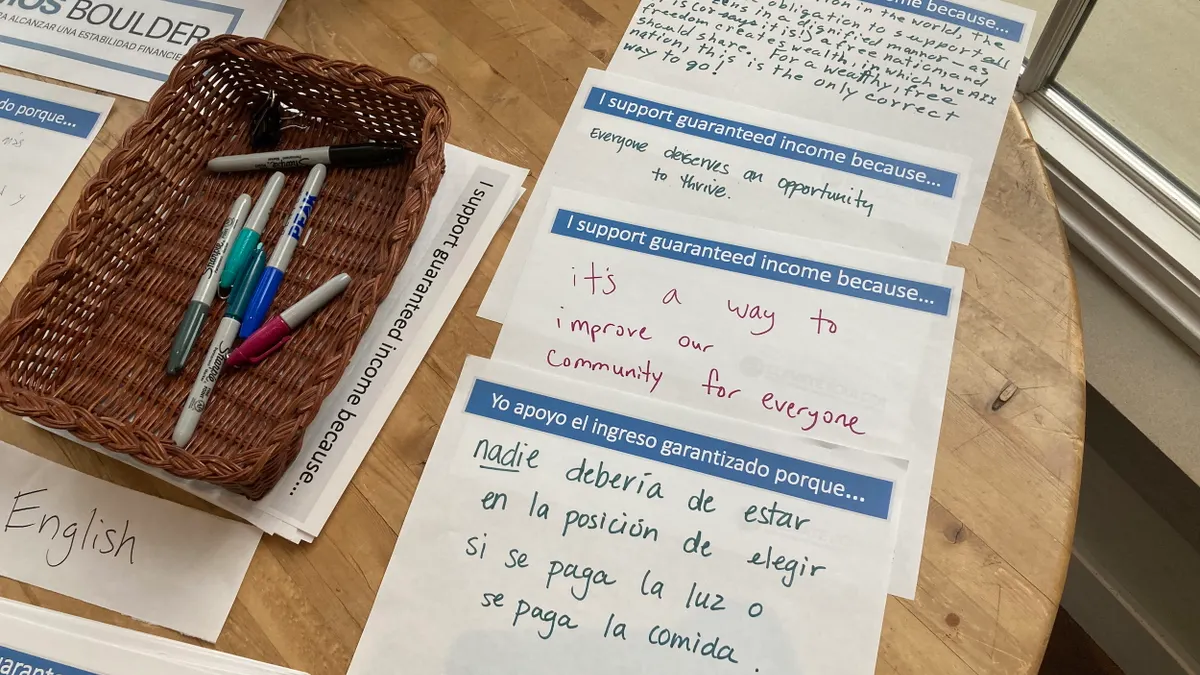 BOULDER
ALCANZAR UNA ESTABILIDAD
do porque...
English
I support guaranteed income because...
because...
in the world, the
obligation to support all
in a dignified manner — as
a free nation, and
freedom creates wealth, in which we ALL
should share. For a wealthy, free
nation, this is the only correct
way to go!
I support guaranteed income because...
Everyone deserves an opportunity
to thrive.
I support guaranteed income because...
it's a way to
improve our
community for everyone
Yo apoyo el ingreso garantizado porque...
nadie debería de estar
en la posición de elegir
si se paga la luz o
se paga la comida.
Sharpie